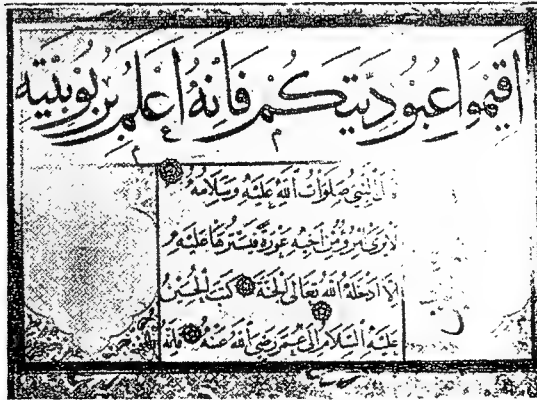 اَقِيمُوا عُبُودِيَّتَكُمْ فَاِنَّهُ اَعْلَمُ بِرُبُوبِيَّتِهِ
قال النبي صَلَوَاتُ اللهِ عَلَيْهِ وَسَلَامُهُ
لا يرى امرؤ من اخيه عورة فيسترها عليه
الا ادخله الله تعالى الجنة كتب الحسين
عليه السلام الى عمر رضي الله عنه فانه